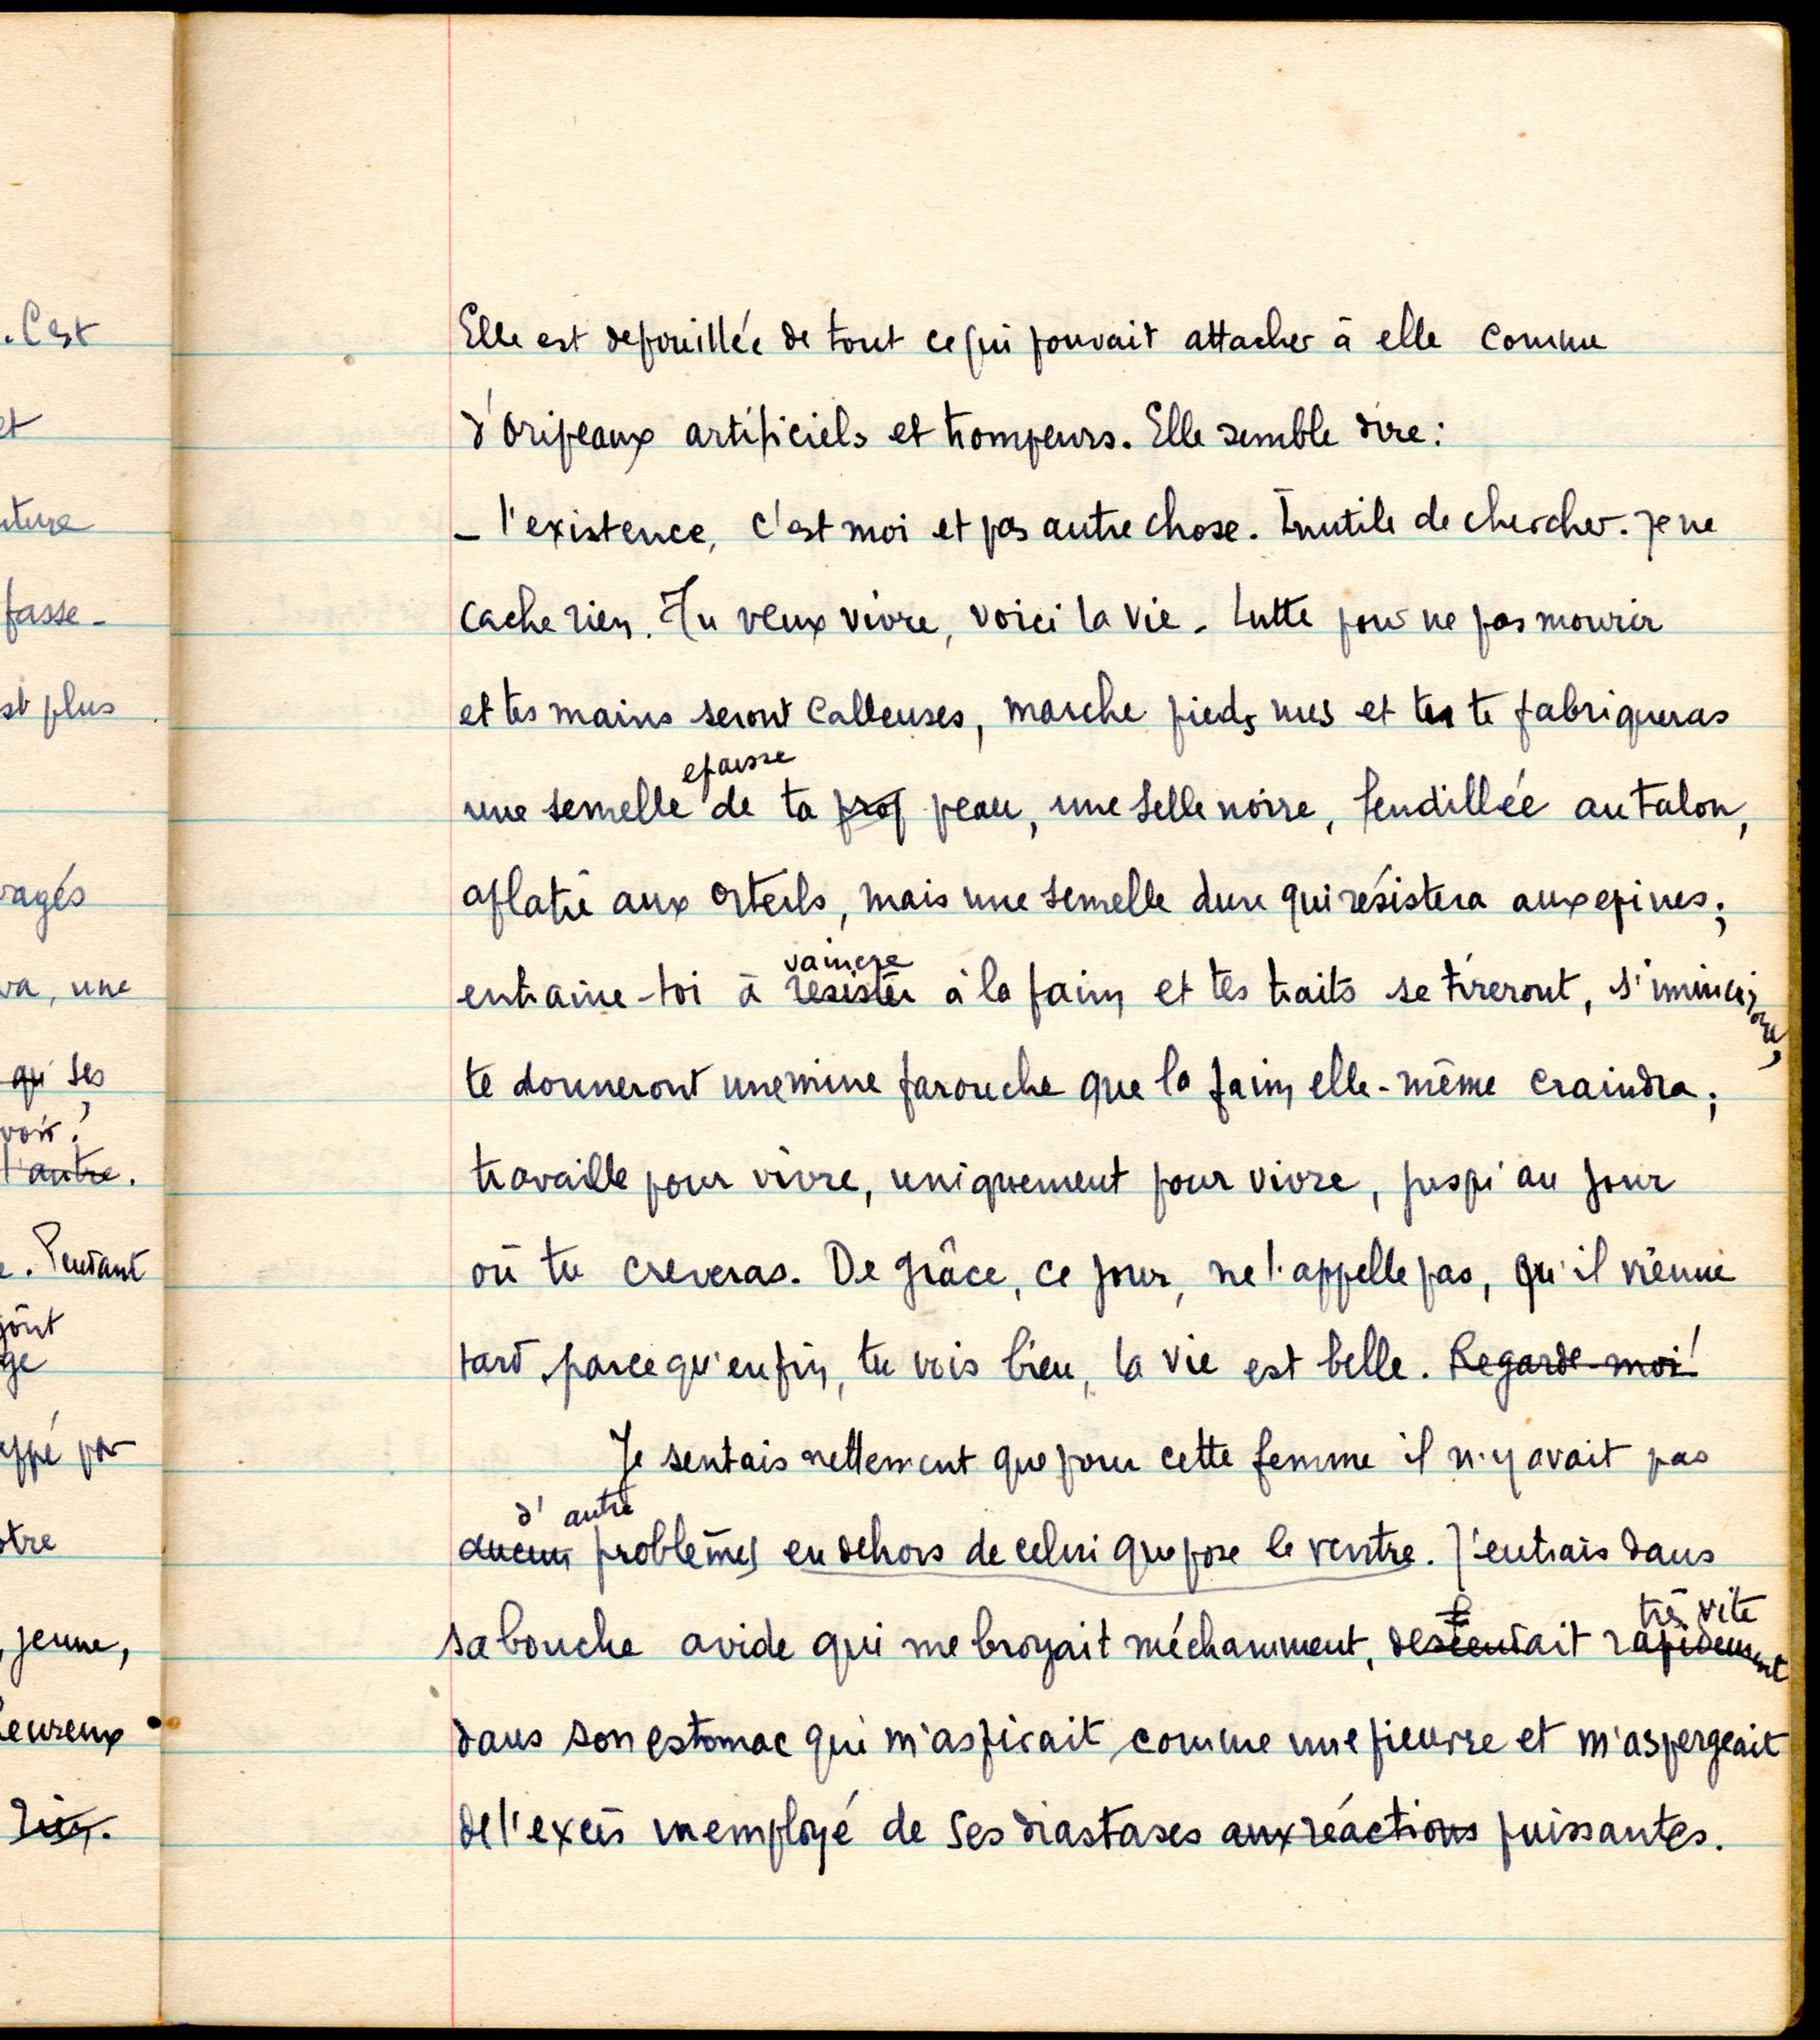 . C'est
et
fasse-
st plus
va, une
qu' ses
voir!
l'autre.
. Pendant
goût
ge
appé par
otre
, jeune,
heureux
rien.
Elle est depouillée de tout ce qui pouvait attacher à elle comme
d'oripeaux artificiels et trompeurs. Elle semble dire:
- l'existence, c'est moi et pas autre chose. Inutile de chercher. Je ne
cache rien. Tu veux vivre, voici la vie. Lutte pour ne pas mourir
et tes mains seront calleuses, marche pieds nus et tu te fabriqueras
epaisse
une semelle de ta prof peau, une selle noire, fendillée au talon,
aplatie aux orteils, mais une semelle dure qui résistera aux epines;
vaincre
entraine-toi à résister à la faim et tes traits se tireront, s'minciront,
te donneront une mine farouche que la faim elle-même craindra;
travaille pour vivre, uniquement pour vivre, jusqu'au jour
où tu creveras. De grâce, ce jour, ne l'appelle pas, qu'il vienne
tard, parce qu'enfin, tu vois bien, la vie est belle. Regarde-moi!
Je sentais nettement que pour cette femme il n'y avait pas
d'autre
aucun problèmes en dehors de celui que pose le ventre. J'entrais dans
très vite
sa bouche avide qui me broyait méchamment, descendait rapidement
dans son estomac qui m'aspirait comme une pieuvre et m'aspergeait
de l'excès inemployé de ses diastases aux réactions puissantes.